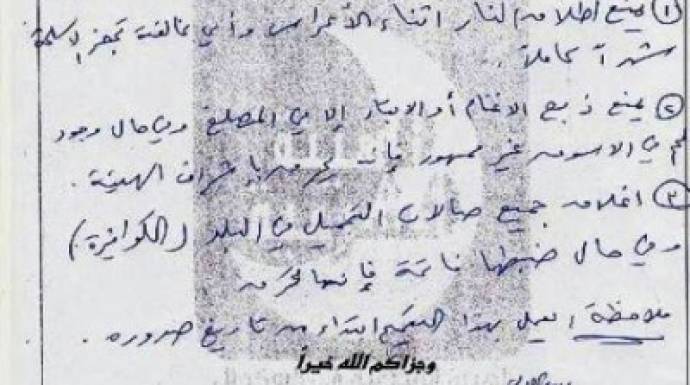 ① يمنع اطلاق النار اثناء الأعراس وأي مخالفة تحجز الاسلحة
شهرآ كاملاً ..
② يمنع ذبح الاغنام أو الابقار إلا في المسلخ وفي حال وجود
لحم في الاسوق غير ممهور فإنه يحرق بإشراف الهيئة .
③ اغلاق جميع صالات التجميل في البلد (الكوافيرة)
وفي حال ضبطها فاتحة فإنها تحرق
ملاحظة : العمل بهذا التعميم ابتداء من تاريخ صدوره .
وجزاكم الله خيراً